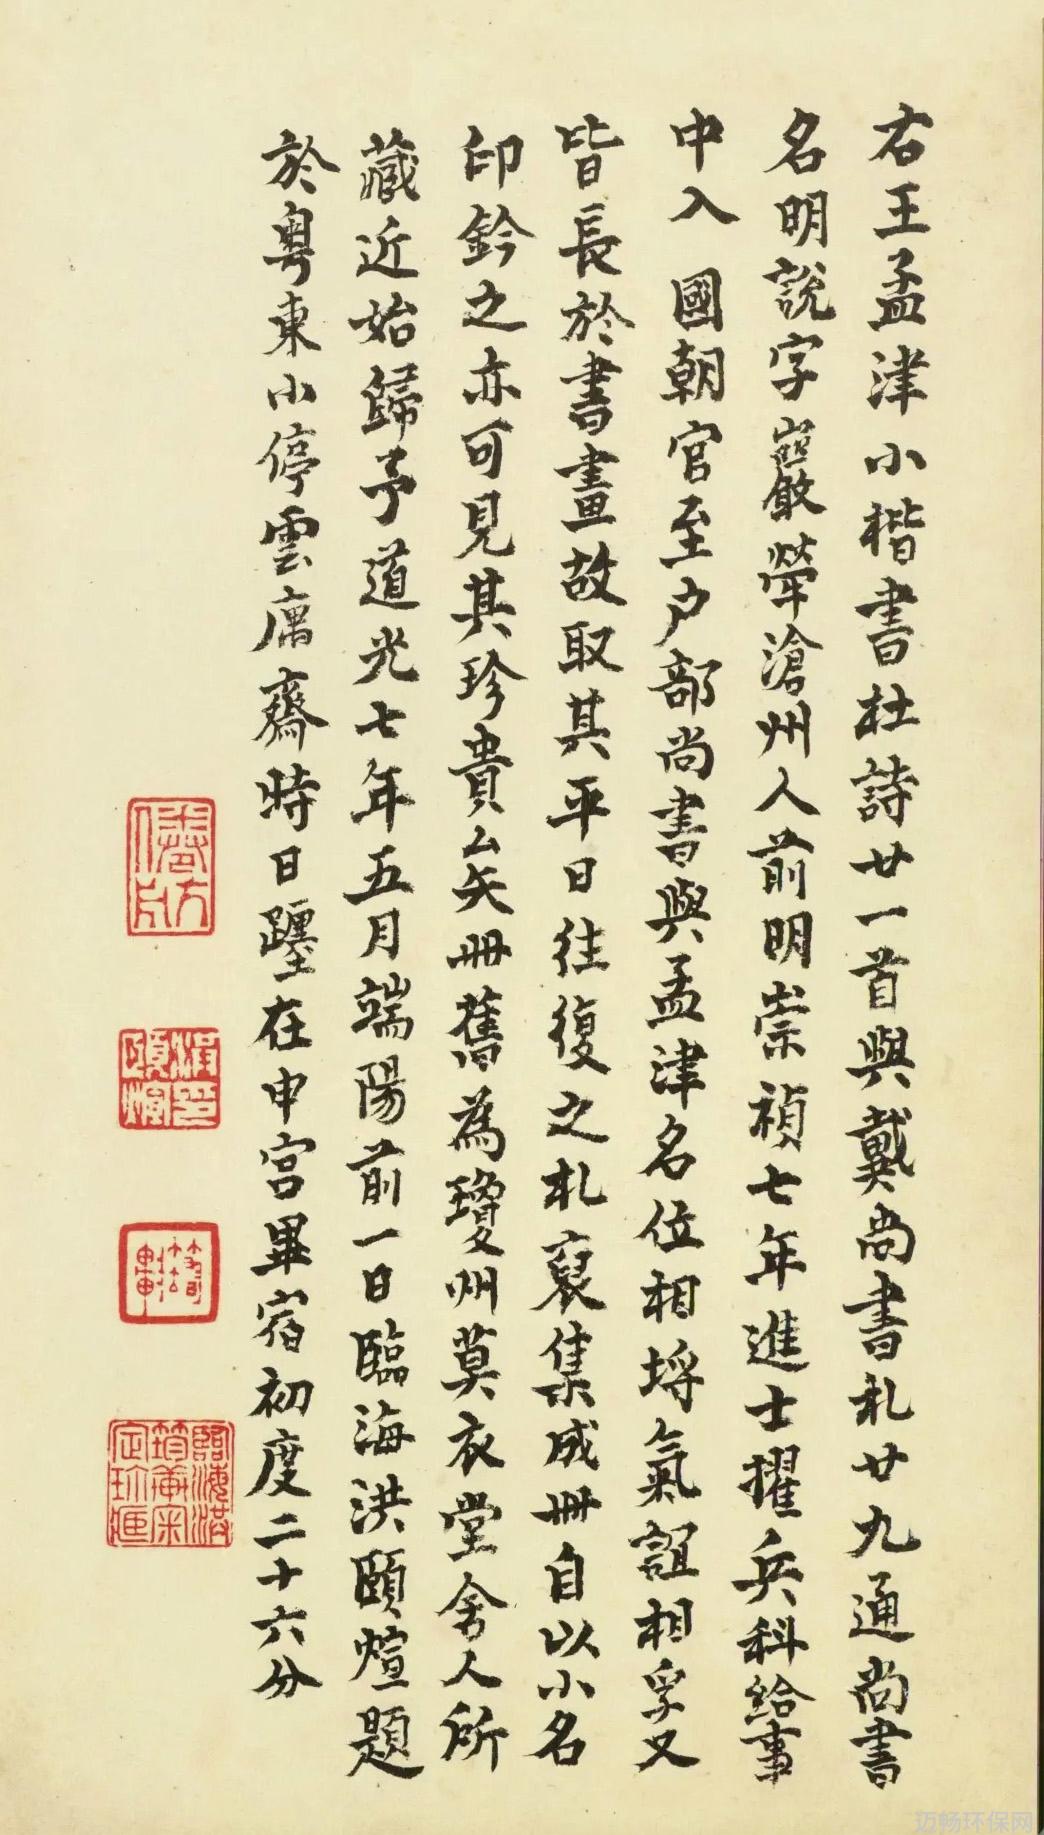 右王孟津小楷書杜詩廿一首與戴尚書札廿九通尚書
名明說字巖犖滄州人前明崇禎七年進士擢兵科給事
中入 國朝官至户部尚書與孟津名位相埒氣誼相孚又
皆長於書畫故取其平日往復之札裒集成冊自以小名
印鈐之亦可見其珍貴矣冊舊為瓊州莫衣堂舍人所
藏近始歸予道光七年五月端陽前一日臨海洪頤煊題
於粵東小停雲寓齋時日躔在申宮畢宿初度二十六分
洪印頤煊
筠軒
臨海洪筠軒宋定珍
迈畅环保网